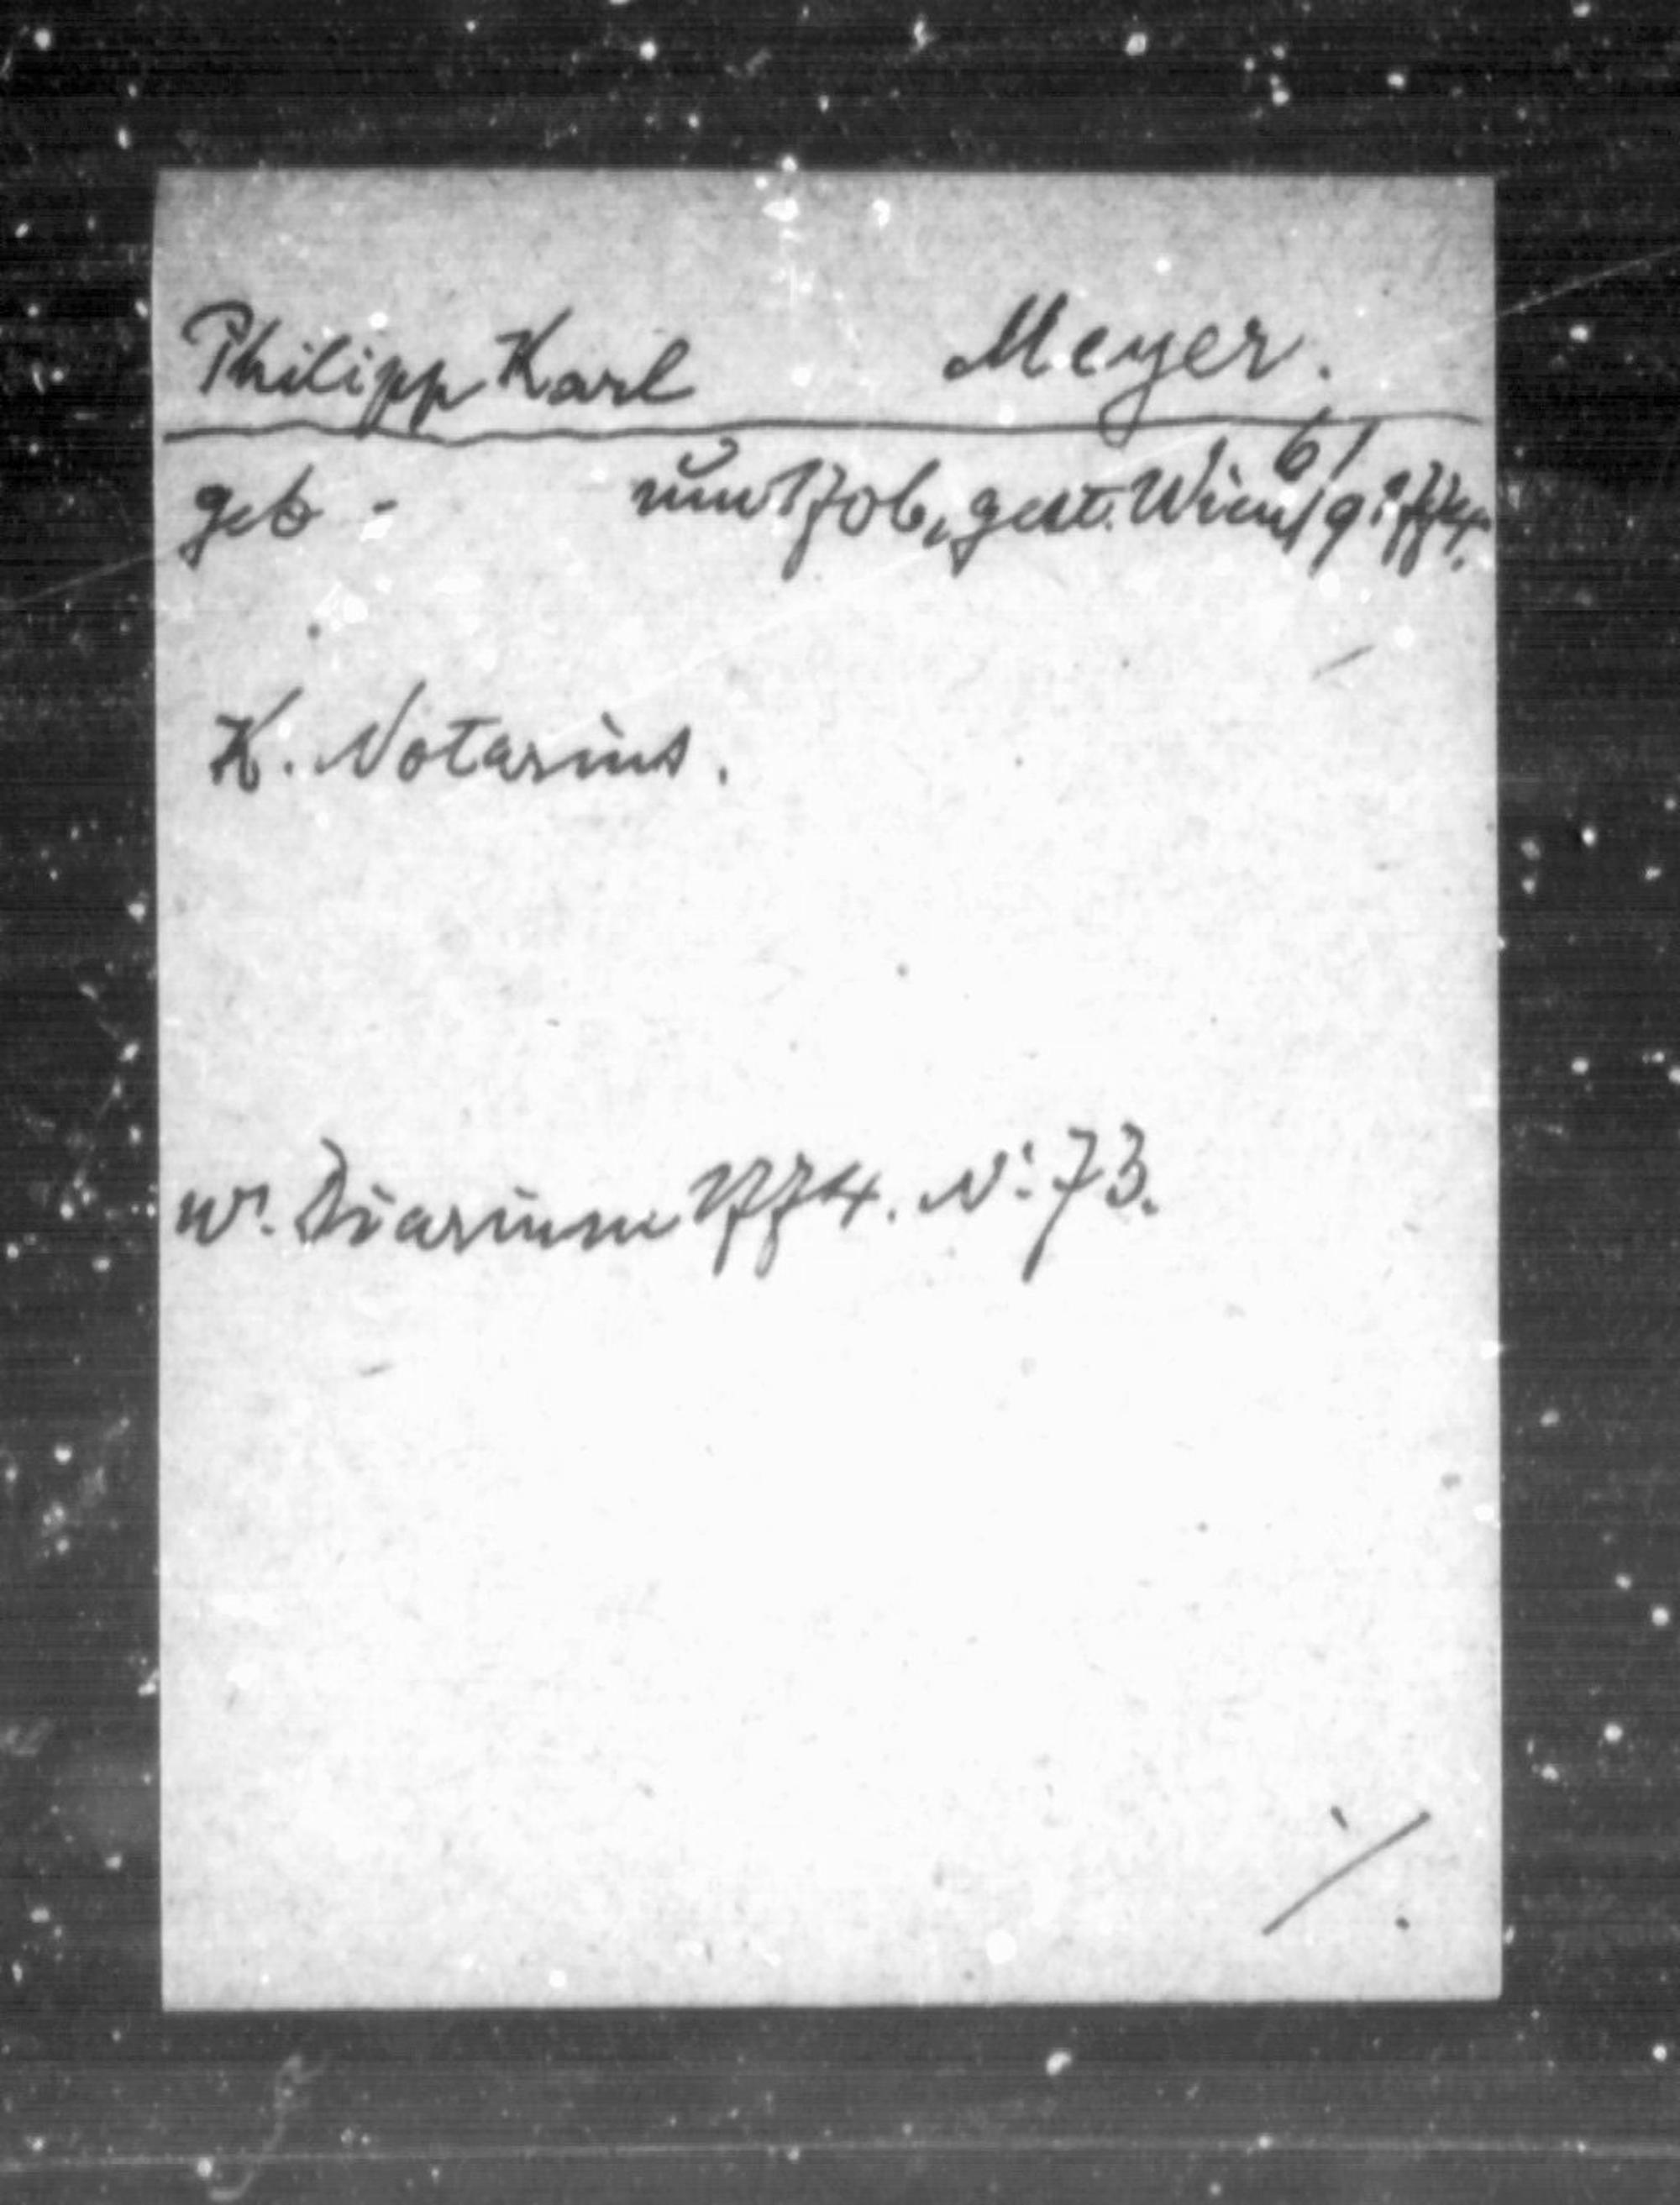 Philipp Karl Meyer.
geb - um 1706, gest. Wien 6/9. 1774.
K. Notarius.
Wr. Diarium 1774. No: 73.